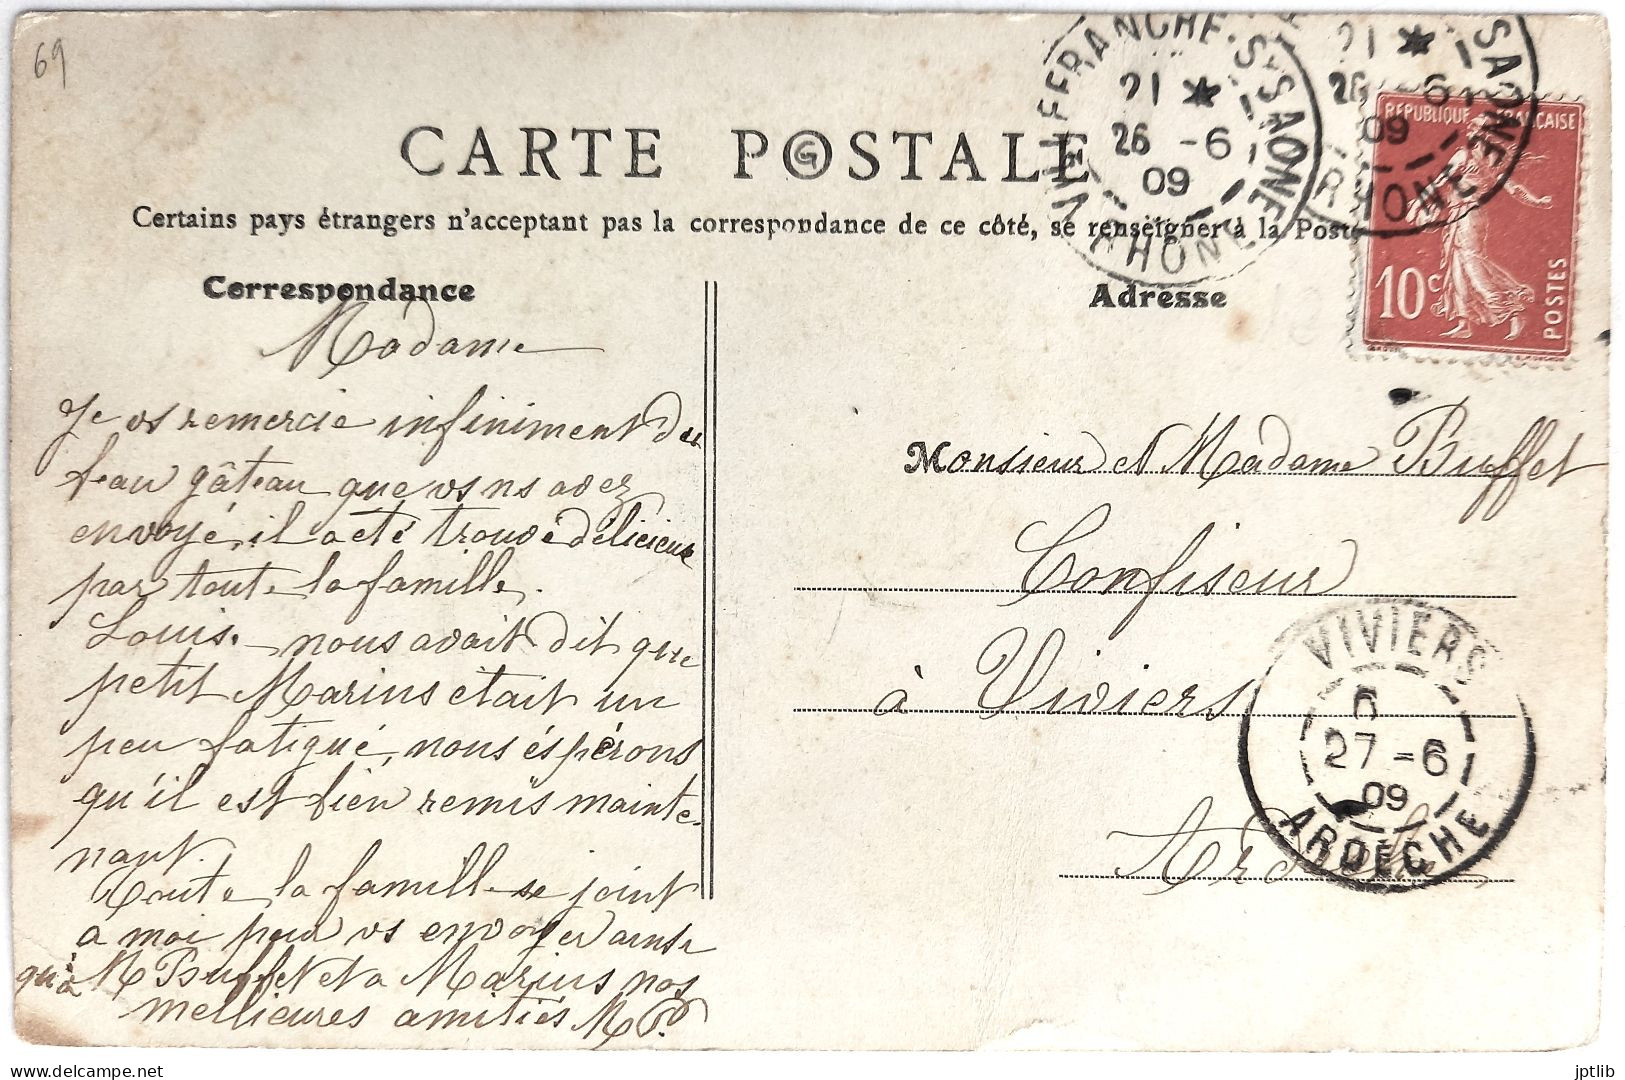 69
CARTE POSTALE
Certains pays étrangers n'acceptant pas la correspondance de ce côté, se renseigner à la Poste
VILLEFRANCHE-S-SAONE
21 *
26 - 6
09
RHONE
21 *
26 - 6
09
SAONE
RHONE
REPUBLIQUE FRANÇAISE
10c
POSTES
Correspondance
Madame
Je vs remercie infiniment du
beau gâteau que vs ns avez
envoyé, il a été trouvé délicieux
par toute la famille.
Louis nous avait dit que
petit Marius était un
peu fatigué, nous éspérons
qu'il est bien remis mainte-
nant.
Toute la famille se joint
a moi pour vs envoyer ainsi
qu'à M Buffet et a Marius nos
meilleures amitiés
Adresse
Monsieur et Madame Buffet
Confiseur
à Viviers
Ardèche
VIVIERS
6
27 - 6
09
ARDECHE
delcampe.net
jptlib